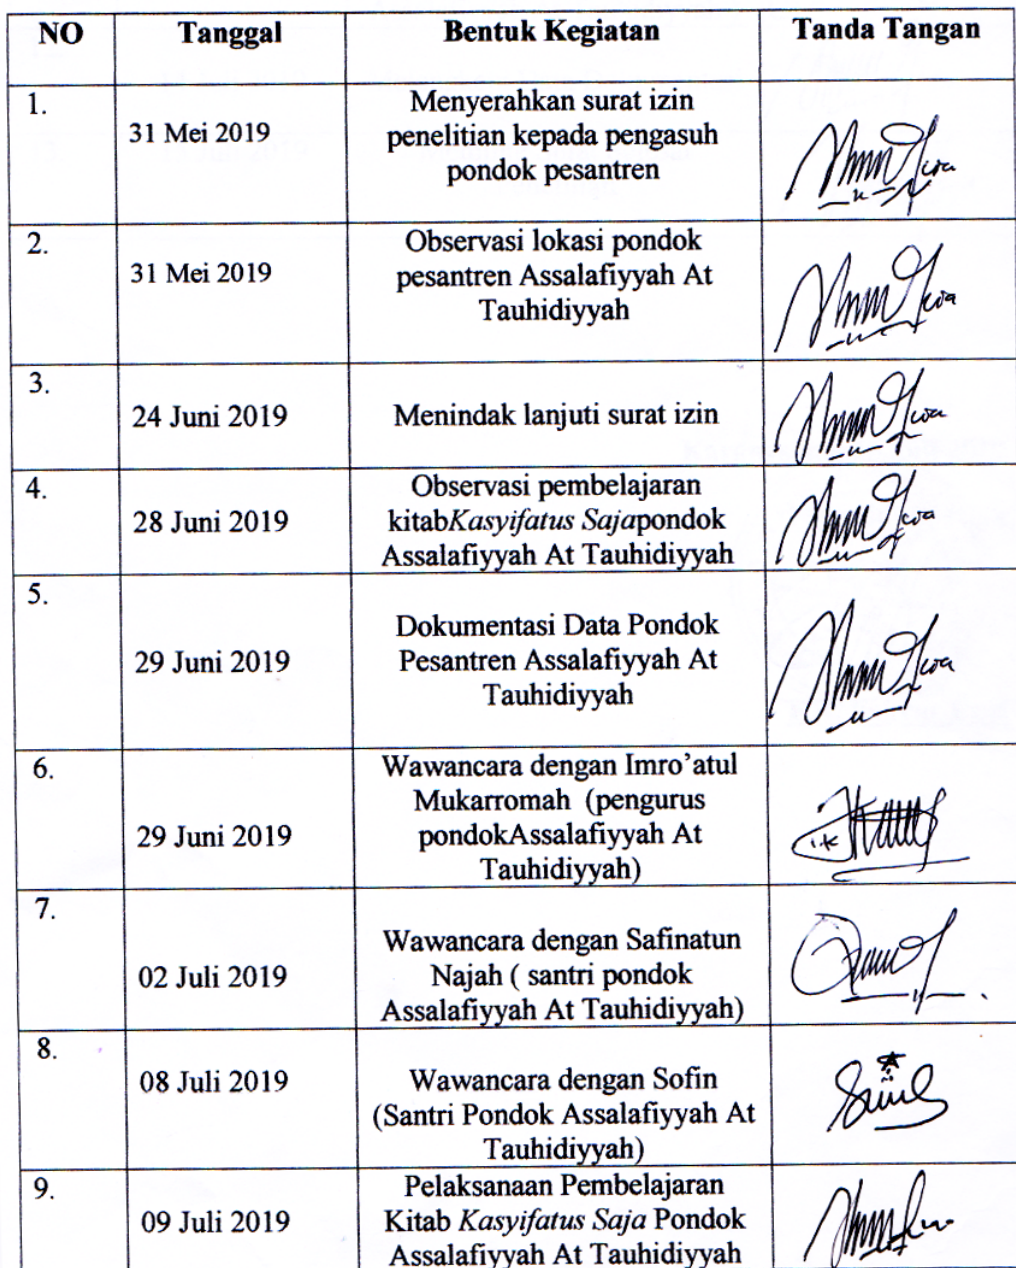 NO Tanggal Bentuk Kegiatan Tanda Tangan
1.
31 Mei 2019
Menyerahkan surat izin
penelitian kepada pengasuh
pondok pesantren
2.
31 Mei 2019
Observasi lokasi pondok
pesantren Assalafiyyah At
Tauhidiyyah
3.
24 Juni 2019
Menindak lanjuti surat izin
4.
28 Juni 2019
Observasi pembelajaran
kitabKasyifatus Sajapondok
Assalafiyyah At Tauhidiyyah
5.
29 Juni 2019
Dokumentasi Data Pondok
Pesantren Assalafiyyah At
Tauhidiyyah
6.
29 Juni 2019
Wawancara dengan Imro'atul
Mukarromah (pengurus
pondokAssalafiyyah At
Tauhidiyyah)
7.
02 Juli 2019
Wawancara dengan Safinatun
Najah ( santri pondok
Assalafiyyah At Tauhidiyyah)
8.
08 Juli 2019
Wawancara dengan Sofin
(Santri Pondok Assalafiyyah At
Tauhidiyyah)
9.
09 Juli 2019
Pelaksanaan Pembelajaran
Kitab Kasyifatus Saja Pondok
Assalafiyyah At Tauhidiyyah